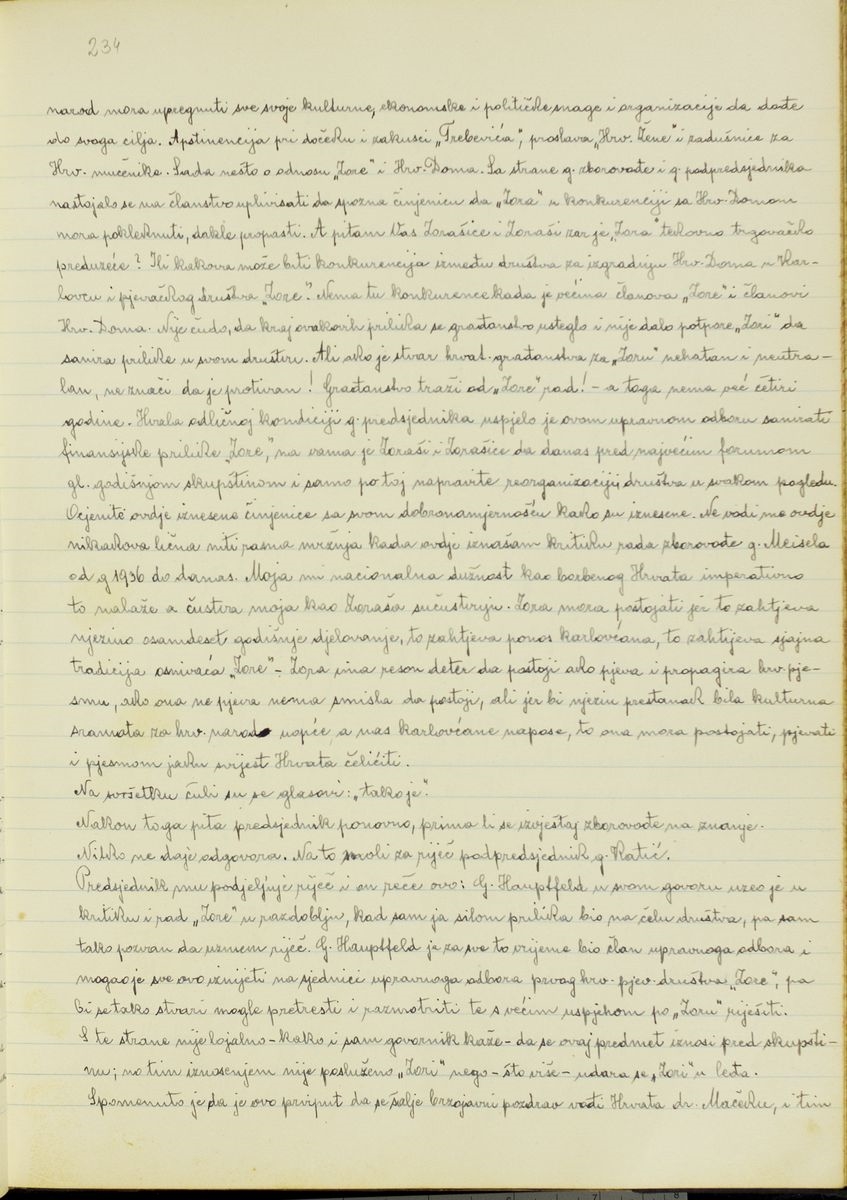 234
narod mora upregnuti sve svoje kulturne, ekonomske i političke snage i organizacije da dođe
do svoga cilja. Apstinencija pri dočeku i zakusci „Trebevića“, proslava „Hrv. Žene“ i zadušnice za
Hrv. mučenike. Sada nešto o odnosu „Zore“ i Hrv. Doma. Sa strane g. zborovođe i g. podpredsjednika
nastojalo se na članstvo uplivisati da spozna činjenicu da „Zora“ u konkurenciji sa Hrv. Domom
mora pokleknuti, dakle propasti. A pitam Vas Zorašice i Zoraši zar je „Zora“ tekovno trgovačko
preduzeće? Ili kakova može biti konkurencija između društva za izgradnju Hrv. Doma u Kar-
lovcu i pjevačkog društva „Zore“. Nema tu konkurence kada je većina članova „Zore“ i članovi
Hrv. Doma. Nije čudo, da kraj ovakovih prilika se građanstvo usteglo i nije dalo potpore „Zori“ da
sanira prilike u svom društvu. Ali ako je stvar hrvat. građanstva za „Zoru“ nehatan i neutra-
lan, ne znači da je protivan! Građanstvo traži od „Zore“ rad! – a toga nema već četiri
godine. Hvala odličnoj kondiciji g. predsjednika uspjelo je ovom upravnom odboru sanirati
finansijske prilike „Zore“, na vama je Zoraši i Zorašice da danas pred najvećim forumom
gl. godišnjom skupštinom i samo po toj napravite reorganizaciju društva u svakom pogledu.
Ocjenite ovdje iznesene činjenice sa svom dobronamjernošću kako su iznesene. Ne vodi me ovdje
nikakova lična niti rasna mržnja kada ovdje iznašam kritiku rada zborovođe g. Meisela
od g 1936 do danas. Moja mi nacionalna dužnost kao borbenog Hrvata imperativno
to nalaže a čustva moja kao Zoraša sučustvuju. Zora mora postojati jer to zahtjeva
njezino osamdeset godišnje djelovanje, to zahtjeva ponos karlovčana, to zahtijeva sjajna
tradicija osnivača „Zore“ – Zora ima reson deter da postoji ako pjeva i propagira hrv. pje-
smu, ako ona ne pjeva nema smisla da postoji, ali jer bi njezin prestanak bila kulturna
sramota za hrv. narod uopće, a nas karlovčane napose, to ona mora postojati, pjevati
i pjesmom jaku svijest Hrvata čeličiti.
Na svršetku čuli su se glasovi: „tako je“.
Nakon toga pita predsjednik ponovno, prima li se izvještaj zborovođe na znanje.
Nitko ne daje odgovora. Na to moli za riječ podpredsjednik g. Katić.
Predsjednik mu podjeljuje riječ i on reče ovo: G. Hauptfeld u svom govoru uzeo je u
kritiku i rad „Zore“ u razdoblju, kad sam ja silom prilika bio na čelu društva, pa sam
tako pozvan da uzmem riječ. G. Hauptfeld je za sve to vrijeme bio član upravnoga odbora i
mogao je sve ovo iznijeti na sjednici upravnoga odbora prvog hrv. pjev. društva „Zore“, pa
bi se tako stvari mogle pretresti i razmotriti te s većim uspjehom po „Zoru“ riješiti.
S te strane nije lojalno – kako i sam govornik kaže – da se ovaj predmet iznosi pred skupšti-
nu; no tim iznosenjem nije posluženo „Zori“ nego – što više – udara se „Zori“ u leđa.
Spomenuto je da je ovo prvi put da se šalje brzojavni pozdrav vođi Hrvata dr. Mačeku, i tim